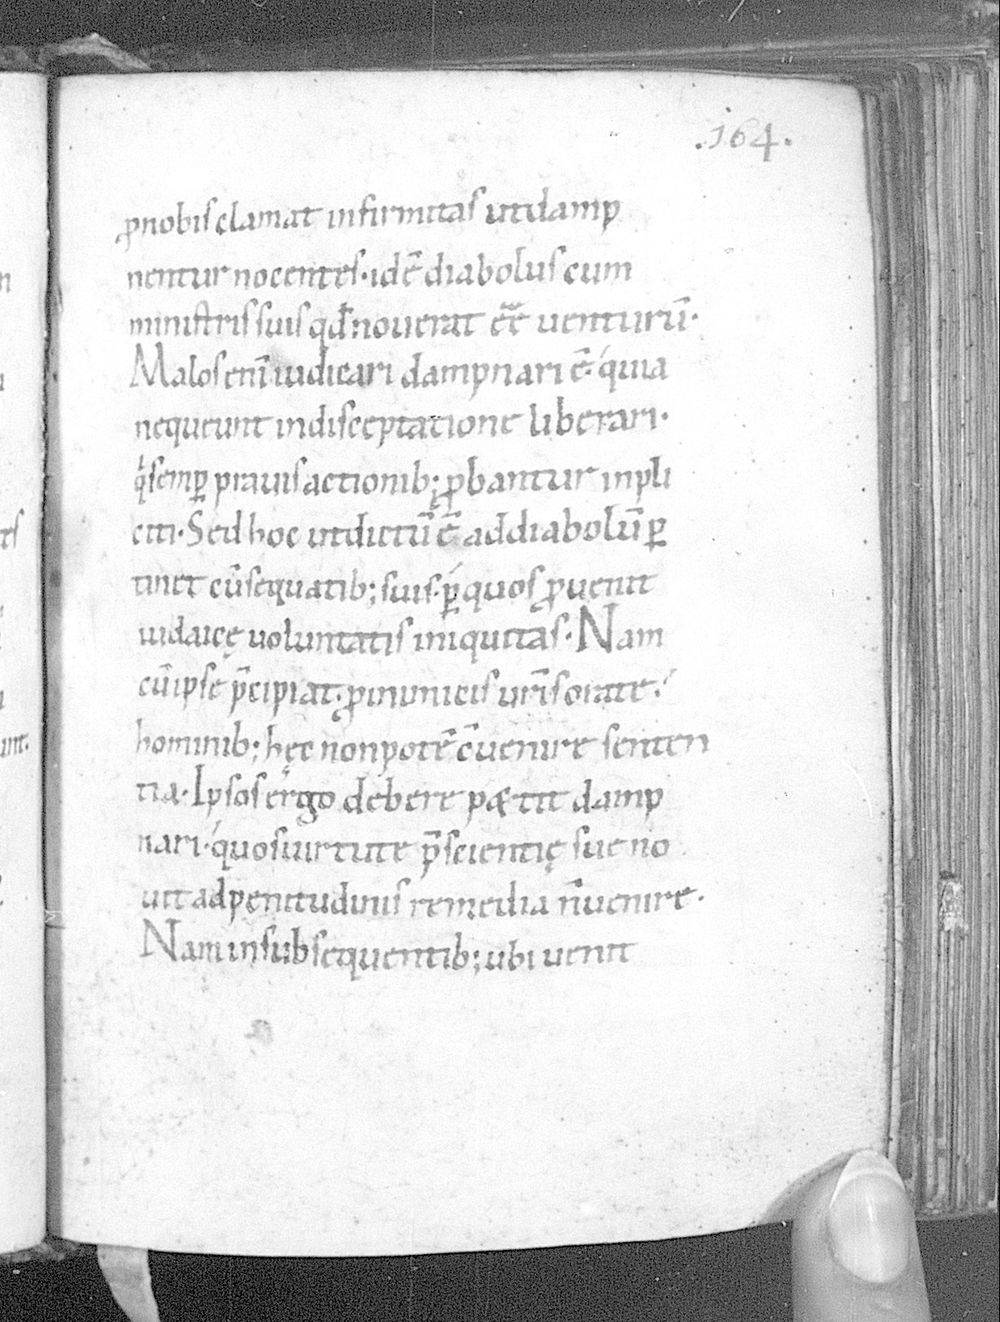 .164.
ꝓnobis clamat infirmitas utdamp
nentur nocentes· idē diabolus cum
ministris suis qđ nouerat eē̄ uenturū·
Malos enī iudicari dampnari ē· quia
nequeunt indisceptatione liberari·
q̄ semꝑ prauis actionib; ꝓbantur inpli
citi· Sed hoc ut dictū ē addiabolū ꝑ
tinet cū sequatib; suis· ꝑ quos ꝓuenit
iudaicę uoluntatis iniquitas· Nam
cū ipse p̄cipiat· ꝓ inimicis urīs orate·
hominib; hęc nonpotē c̄uenire senten
tia· Ipsos ergo debere pætit damp
nari· quos uirtute p̄scientię sue no
uit adpenitudinis remedia n̄uenire·
Nam insubsequentib; ubi uenit